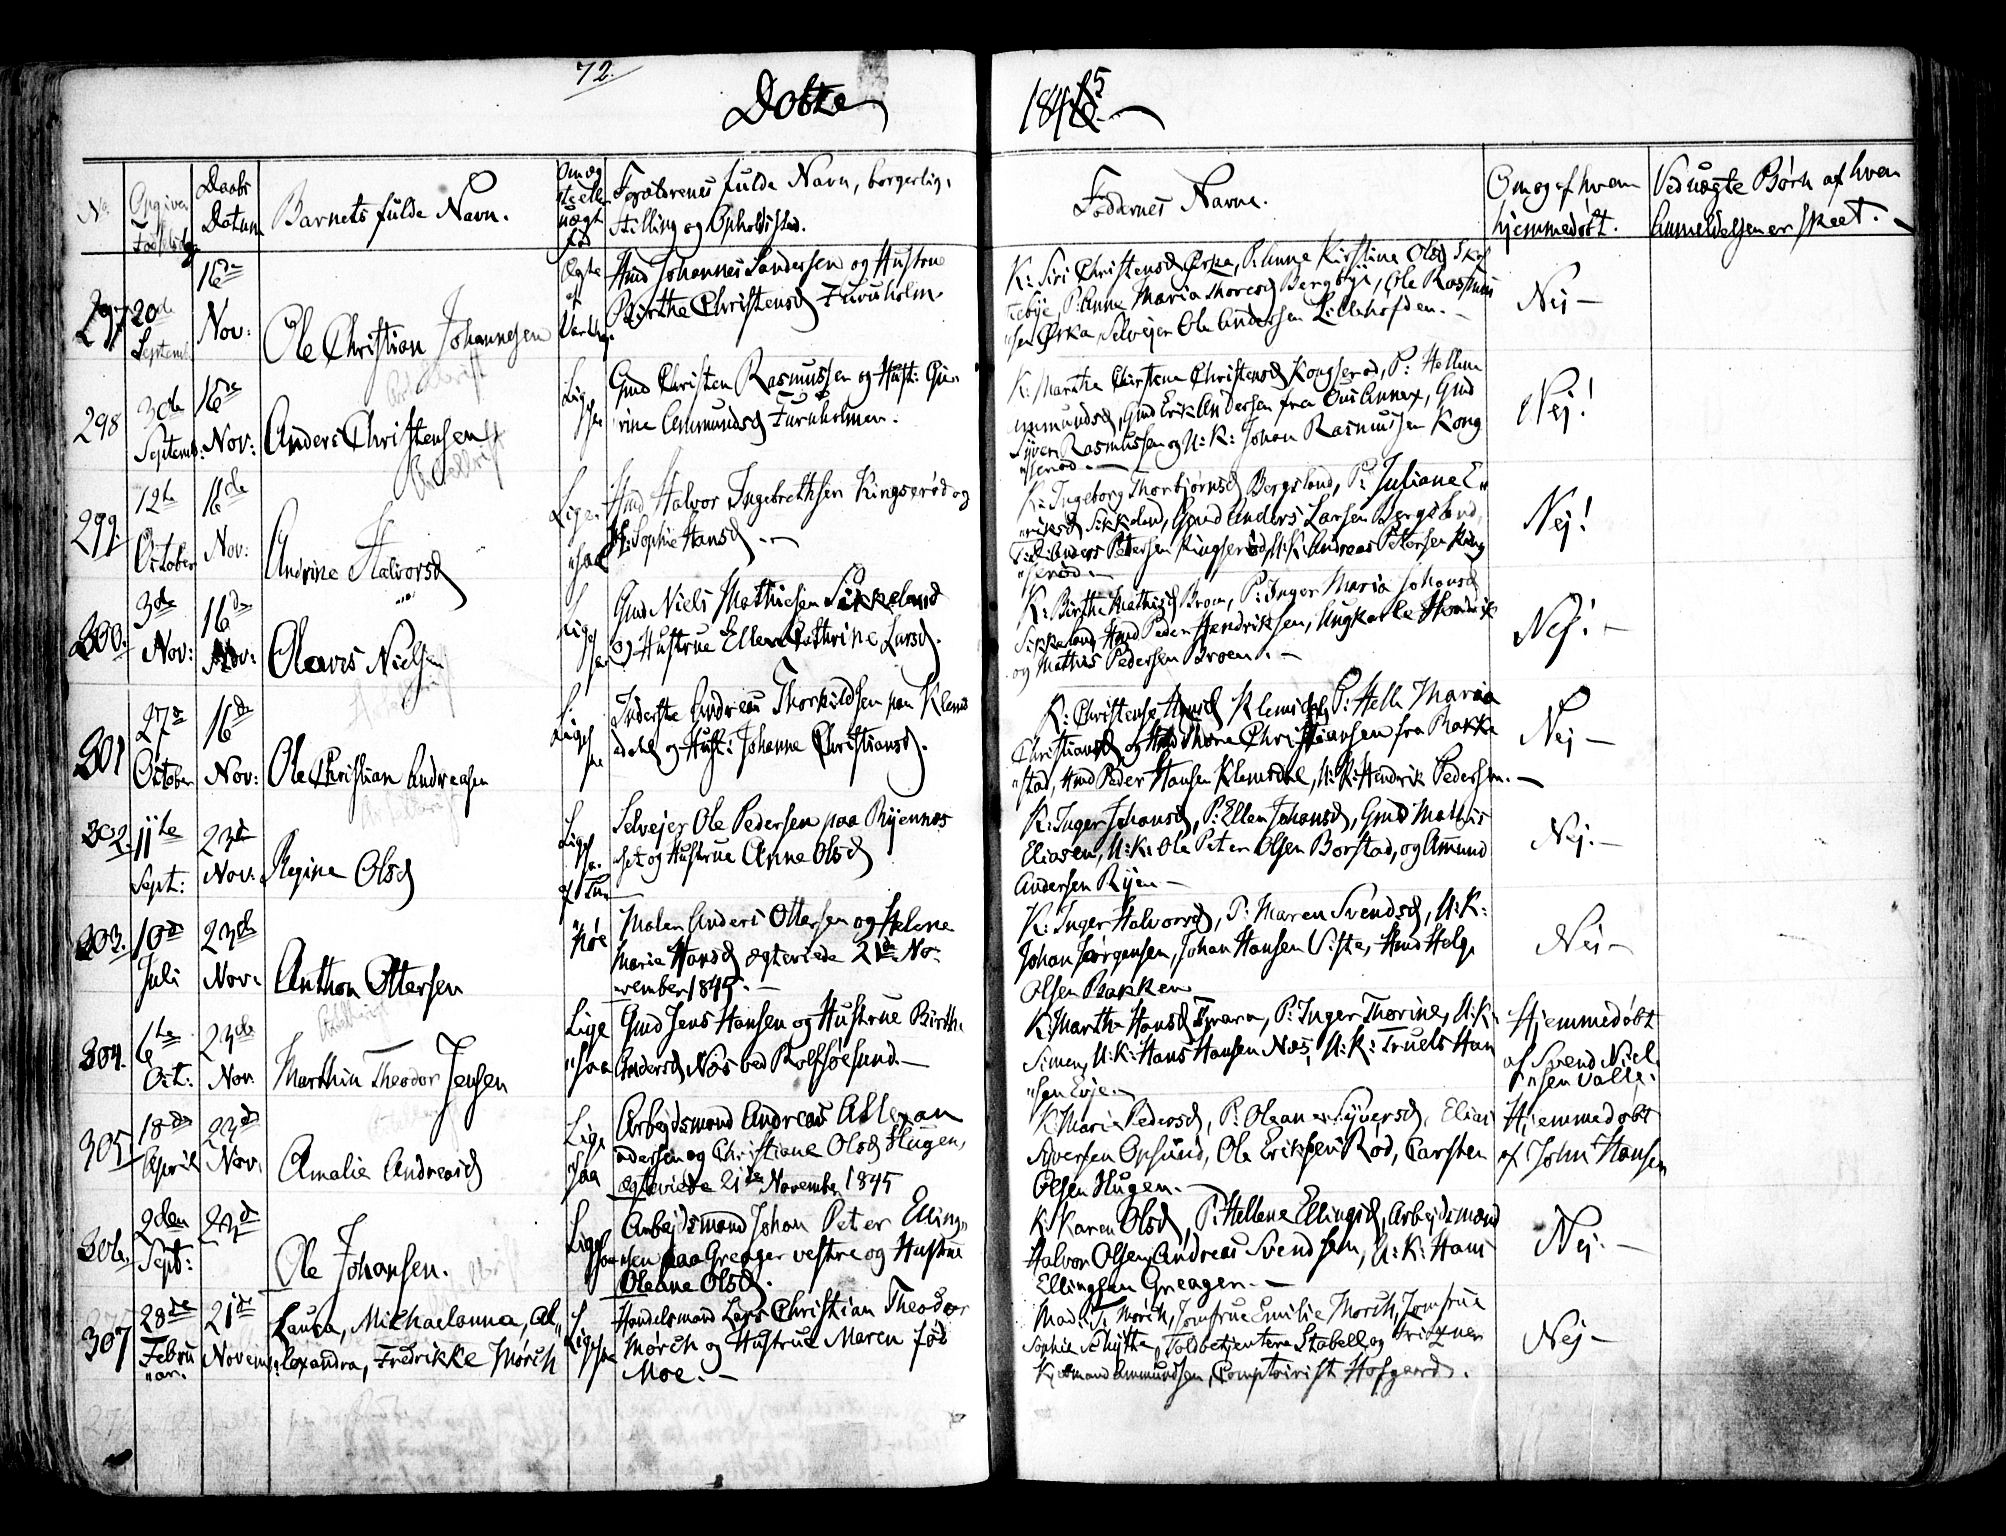 72.
Døbte
1845
No
Opgiven Fødselsdag
Daabs Datum
Barnets fulde Navn.
Om ægte eller uægte fød
Forældrenes fulde Navn, borgerlig,
Stilling og Opholdssted.
Faddernes Navne.
Om og af hvem
hjemmedøbt.
Ved uægte Børn af hvem
Anmeldelsen er skeet.
297
20de Septemb:
16de Nov:
Ole Christian Johannesen
Ægte
Johannes Andersen og Hustrue
Birthe Christensd Furuholm
K: Siri Christensd, P: Anne Kirstine Olsd
P: Anne Maria Thoresd Bergbye, Ole Rasmus
"sen, Selvejer Ole Andersen Lillehofden.
Nej
298
3de Septemb:
16de Nov:
Anders Christensen
Lige
Gmd Christen Rasmussen og Hust: Gu-
rine Ammundsd Furuholmen.
K: Marthe Christensd Kongserød, P: Hellene
Ammundsd, Gmd Erik Andersen fra Ons Annex, Gmd
Syver Rasmussen og U:K: Johan Rasmussen Kong
"serød.
Nej!
299.
12te October
16de Nov:
Andrine Halvorsd
Lige
"saa
Hmd Halvor Ingebrethsen Kingserød og
H: Sophie Hansd.
K: Ingeborg Thorbjørnsd Bergsland, P: Juliane E"
"riksd Sikkeland, Gmd Anders Larsen Bergsland,
Anders Petersen Kingserød, U:K: Andreas Petersen King
"serød
Nej!
300.
3de Nov:
16de Nov:
Olaves Nielsen
Lige
Gmd Niels Mathiesen Sikkeland
og Hustrue Ellen Cathrine Larsd.
K: Birthe Mathisd Broen, P: Inger Maria Johansd
Sikkeland, Hmd Peder Hendriksen, Ungkarle Hendrik
og Mathis Pedersen Broen.
Nej!
301
27de October
16de Nov:
Ole Christian Andreasen
Lige
Inderste Andreas Thorkildsen paa Klems
dahl og Hust: Johanne Christiansd.
K: Christense Hansd Klemsdahl, P: Helle Maria
Christiansd og Thore Christiansen fra Rakke
"stad, Hmd Peder Hansen Klemsdal, U:K: Hendrik Pedersen.
Nej
302.
11te Sept:
23de Nov:
Regine Olsd
Lige
Selvejer Ole Pedersen paa Ryennæs
og Hustrue Anne Olsd
K: Inger Johansd, P: Ellen Johansd, Gmd Mathis
Eliasen, U:K: Ole Peter Olsen Borstad, og Amund
Andersen Ryen
Nej.
303.
10de Juli
23de Nov:
Anthon Ottersen
Maler Anders Ottersen og Helene
Maria Hansd ægteviede 21de No-
vember 1845.
K: Inger Halvorsd, P: Maren Svendsd, U:K:
Johan Jørgensen, Johan Hansen Viste, Hmd Helge
Olsen Bakken
Nej
304.
6te Oct:
23de Nov:
Marthin Theodor Jensen
Lige
"saa
Gmd Jens Hansen og Hustrue Birthe
Andersd Næs ved Rolfsøesund.
K: Marthe Hansd, P: Inger Thorine, U:K:
Simen, U:K: Hans Hansen Næs, U:K: Truels Han
"sen Evje.
Hjemmedøbt
af Svend Niel
"sen Valle.
305
18de April
23de Nov:
Amalie Andreasd
Lige
"saa
Arbejdsmand Andreas Allexan
dersen og Christiane Olsd Hugen,
ægteviede 21de November 1845
K: Mari Pedersd, P: Oleane Syversd, Elias
Syversen Opsund, Ole Eriksen Rød, Carsten
Olsen Hugen.
Hjemmedøbt
af John Hansen
306.
2den Sept:
23de
Ole Johansen.
Ligesaa
Arbejdsmand Johan Peter Elling"
"sen paa Greager vestre og Hustrue
Oleane Olsd.
K: Karen Olsd, P: Hellene Ellingsd, Arbejdsmand
Halvor Olsen, Andreas Svendsen, U:K: Hans
Ellingsen Greager.
Nej.
307
28de Febru
"ar.
21de Novemb:
Laura, Michaelanna, Al"
"lexandra, Fredrikke Mørch
Ligesaa
Handelsmand Lars Christian Theodor
Mørch og Hustrue Maren fød
Moe.
Mad: Mørch, Jomfrue Emilie Mørch, Jomfrue
Sophie Schytte, Toldbetjentene Stabell og
Kjøbmand Ammundsen, Comptoirist Hofgaard.
Nej